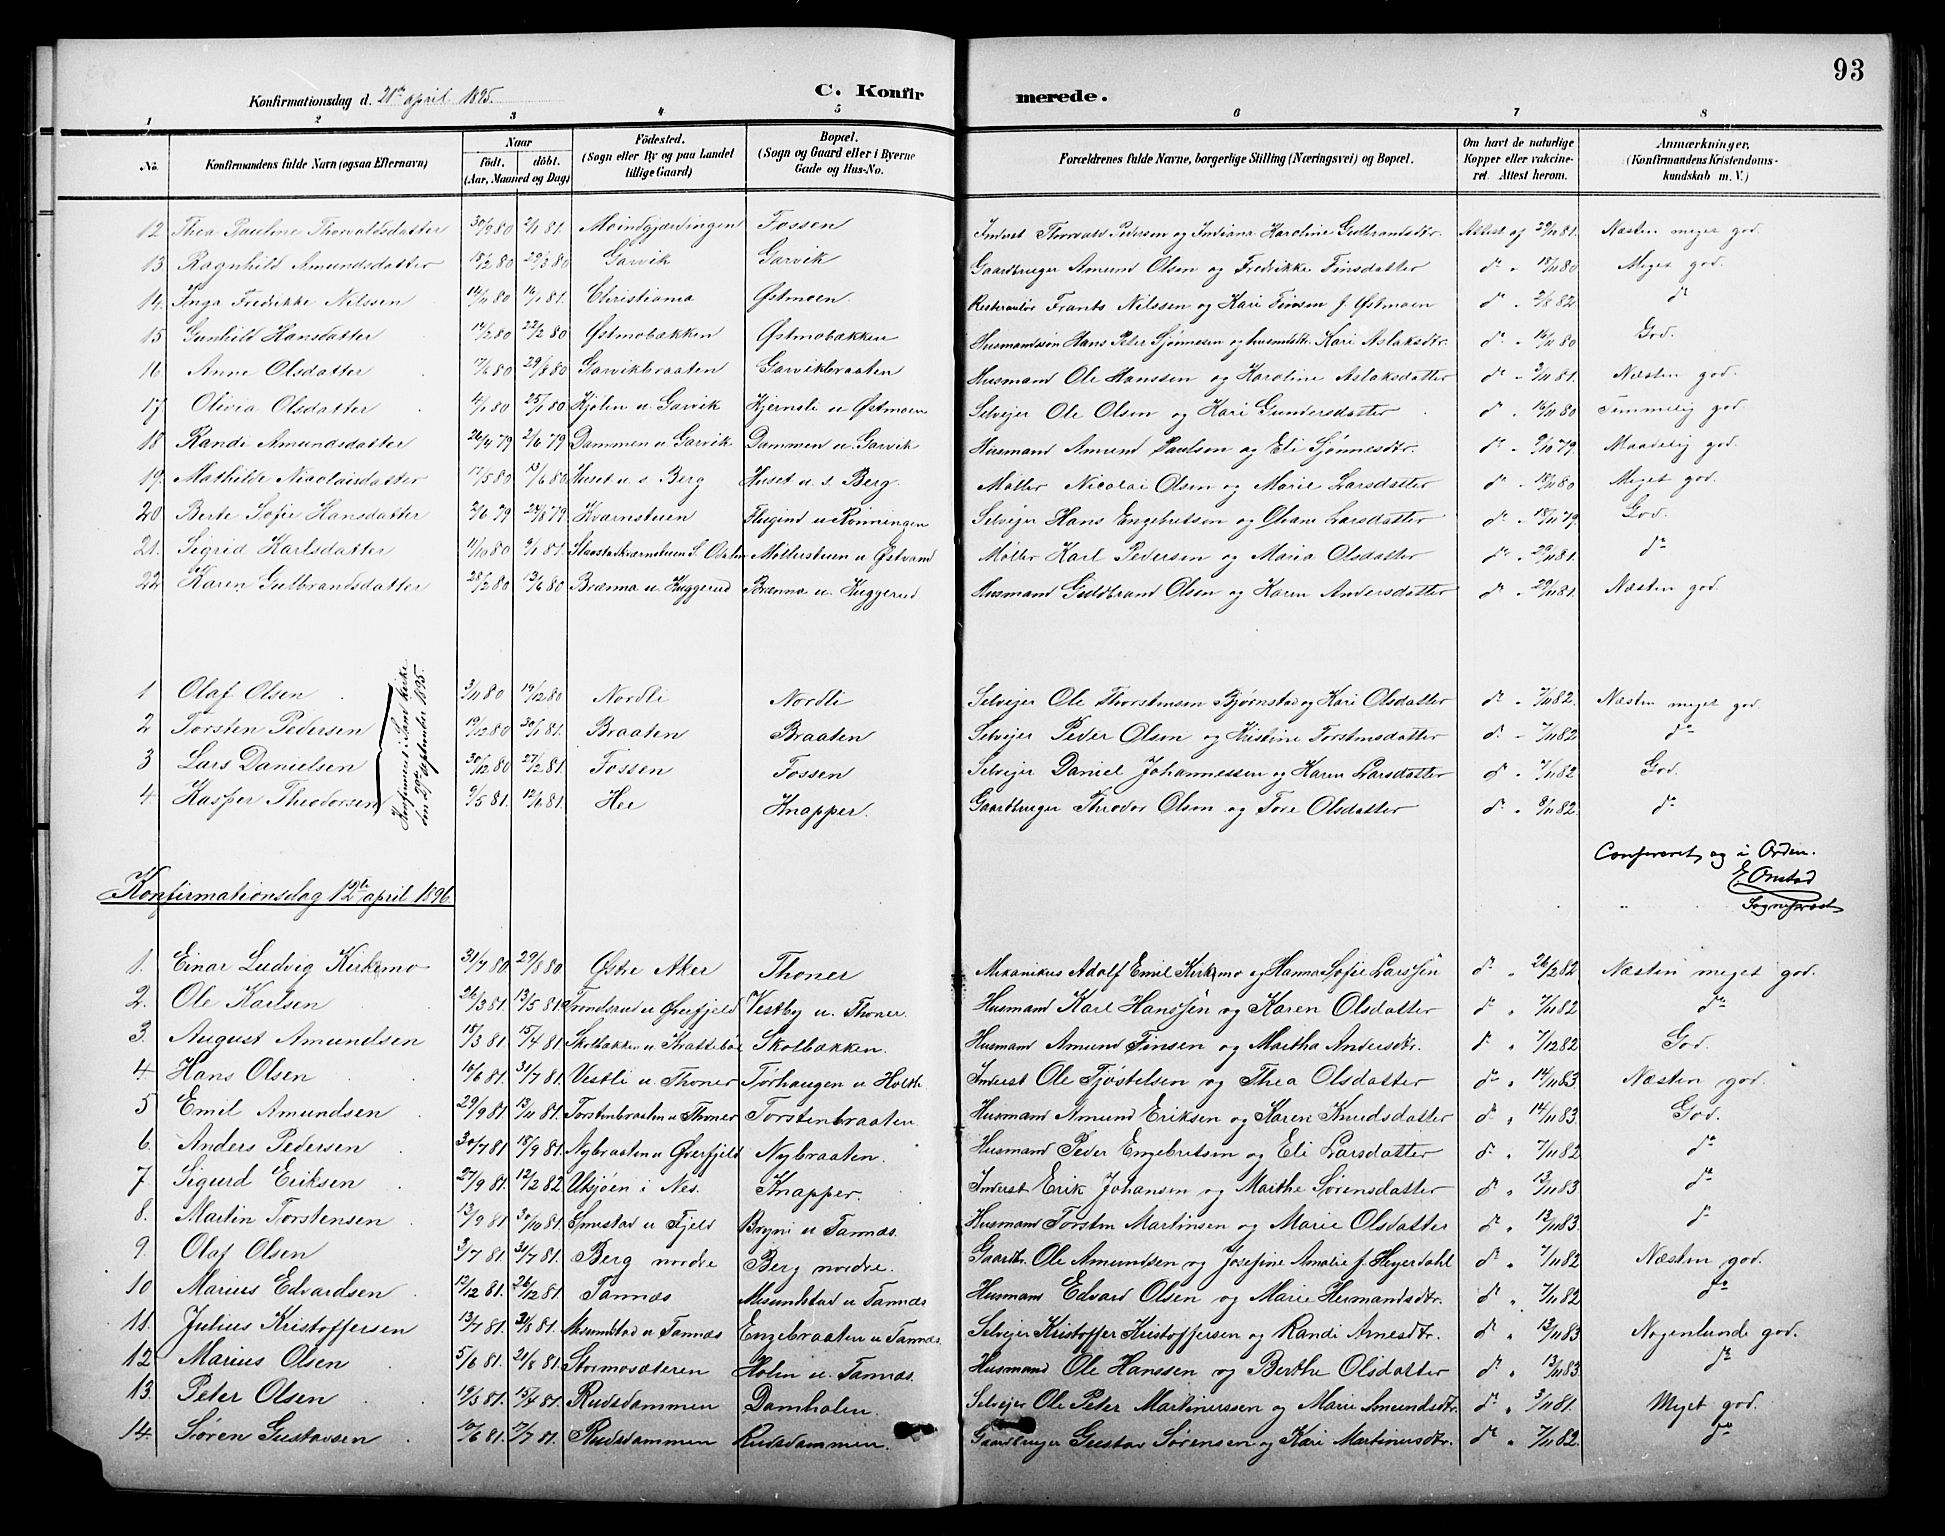 93
Konfirmationsdag d. 21de april 1895.
C. Konfir merede.
1 2 3 4 5 6 7 8
No. Konfirmandens fulde Navn (ogsaa Efternavn) Naar født, døbt. (Aar, Maaned og Dag) Fødested. (Sogn eller By og paa Landet tillige Gaard) Bopæl. (Sogn og Gaard eller i Byerne Gade og Hus-No. Forældrenes fulde Navne, borgerlige Stilling (Næringsvei) og Bopæl. Om havt de naturlige Kopper eller vaccineret. Attest herom. Anmærkninger, (Konfirmandens Kristendomskundskab m. V.)
12 Thea Pauline Thorvaldsdatter 30/9 80 2/1 81. Moindgjærdingen Fossen Inderst Thorvald Pedersen og Indiana Karoline Gulbrandsdtr. Attest af 29/11 81. Næsten meget god.
13. Ragnhild Amundsdatter 18/2 80 29/3 80 Garvik Garvik Gaardbruger Amund Olsen og Fredrikke Finsdatter do " 18/11 80 Meget god.
14. Inga Fredrikke Nilssen 14/11 80 16/1 81. Christiania Østmoen. Restauratør Frants Nilssen og Kari Finsen f. Østmoen do " 2/8 82 do
15 Gunhild Hansdatter 14/2 80 22/2 80 Østmobakken Østmobakken Husmandssøn Hans Peter Sjønnesen og husmdtr. Kari Aslaksdtr. do " 16/11 80 God.
16 Anne Olsdatter 17/6 80 29/8 80 Garvikbraaten Garvikbraaten Husmand Ole Hanssen og Karoline Aslaksdatter do " 3/11 81. Næsten god.
17. Olivia Olsdatter 4/1 80 25/1 80 Kjølen u. Garvik Kjernsli u. Østmoen Selvejer Ole Olsen og Kari Gundersdatter do " 16/11 80 Temmelig god
18 Randi Amundsdatter 26/4 79 2/6 79 Dammen u. Garvik Dammen u. Garvik Husmand Amund Paulsen og Eli Sjønnesdtr. do " 9/10 79. Maadelig god.
19. Mathilde Nicolaisdatter 17/5 80 13/6 80 Huset u. s. Berg Huset u. s. Berg. Møller Nicolai Olsen og Marie Larsdatter do " 18/11 80 Meget god.
20 Berte Sofie Hansdatter 2/6 79 24/8 79 Kvarnstuen Flugind u. Rønningen Selvejer Hans Engebretsen og Oliane Larsdatter do " 18/11 79. God.
21. Sigrid Karlsdatter 11/10 80 9/1 81. Slaastadkvernstuen S. Odalen Møllerstuen u Østvand Møller Karl Pedersen og Maria Olsdatter do " 29/11 81. do
22. Karen Gulbrandsdatter 28/2 80 13/6 80 Brænna u. Huggerud Brænna u. Huggerud Husmand Guldbrand Olsen og Karen Andersdatter do " 29/11 81. Næsten god.
Konfirmeret i Ssmt kirke den 29de september 1895.
1 Olaf Olsen 3/11 80 19/12 80 Nordli Nordli Selvejer Ole Thorstensen Bjørnstad og Kari Olsdatter do " 7/11 82. Næsten meget god
2 Torsten Pedersen 19/12 80 30/1 81. Braaten Braaten Selvejer Peder Olsen og Kristine Torstensdatter do " 7/11 82 do
3 Lars Danielsen 30/12 80 27/2 81. Fossen Fossen Selvejer Daniel Johannessen og Karen Larsdatter do " 7/11 82 God.
4 Kasper Theodorsen 9/5 81. 12/6 81. Her Knapper. Gaardbruger Theodor Olsen og Tore Olsdatter do " 8/11 82. do
Confereret og i Orden.
E. Onstad
Sogneprest
Konfirmationsdag 12te april 1896.
1. Einar Ludvig Kirkemo 31/7 80 29/8 80 Østre Aker Thoner Mekanikus Adolf Emil Kirkemo og Hanna Sofie Larssen do " 26/2 82 Næsten meget god.
2. Ole Karlsen 26/3 81. 13/5 81. Trondsrud u Øverfjeld Vestby u. Thoner. Husmand Karl Hanssen og Karen Olsdatter do " 7/11 82 do
3. August Amundsen 18/3 81. 15/4 81. Skolbakken u. Krattebøl Skolbakken. Husmand Amund Finsen og Martha Andersdtr. do " 7/12 82 God.
4. Hans Olsen 16/6 81. 31/7 81. Vestli u. Thoner Torhaugen u Holth Inderst Ole Tjøstelsen og Thea Olsdatter do " 14/11 83 Næsten god.
5 Emil Amundsen 29/9 81. 13/11 81. Torstenbraaten u Thoner Torstenbraaten Husmand Amund Eriksen og Karen Knudsdatter do " 14/11 83 God.
6. Anders Pedersen 30/7 81. 18/9 81. Nybraaten u Øverfjeld Nybraaten. Husmand Peder Engebretsen og Eli Larsdatter do " 7/11 82 do
7. Sigurd Eriksen 27/9 81. 12/2 82 Utsjøen i Nes. Knapper. Inderst Erik Johansen og Marthe Sørensdatter do " 13/11 83 do
8. Martin Torstensen 13/9 81. 30/10 81. Smestad u Fjeld Bryni u Tannæs. Husmand Torsten Martinsen og Marie Olsdatter do " 13/11 83. do
9. Olaf Olsen 3/7 81. 31/7 81. Berg nordre Berg nordre. Gaardbr. Ole Amundsen og Josefine Amalie f. Heyerdahl do " 7/11 82 Næsten god.
10 Marius Edvardsen 12/12 81. 26/12 81. Tannæs Mesundstad u Tannæs Husmand Edvard Olsen og Marie Hermandsdtr. do " 7/11 82 do
11. Julius Kristoffersen 13/7 81. 31/8 81. Mesundstad u. Tannæs Engebraaten u Tannæs. Selvejer Kristoffer Kristoffersen og Randi Arnesdtr. do " 13/11 83 Nogenlunde god.
12 Marius Olsen 5/6 81. 21/8 81. Stormosæteren Holen u. Tannæs. Husmand Ole Hanssen og Berthe Olsdatter do " 13/11 83. do
13. Peter Olsen 19/3 81. 15/4 81. Rudsdammen Damholen. Selvejer Ole Peter Martinussen og Marie Amundsdtr. do " 3/11 81. Meget god.
14. Søren Gustavsen 10/6 81. 17/7 81. Rudsdammen Rudsdammen. Gaardbruger Gustav Sørensen og Kari Martinusdtr. do " 7/11 82. do